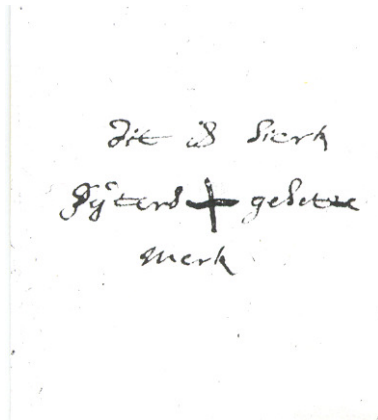 dit is Sierk
Sÿterds + gesette
merk